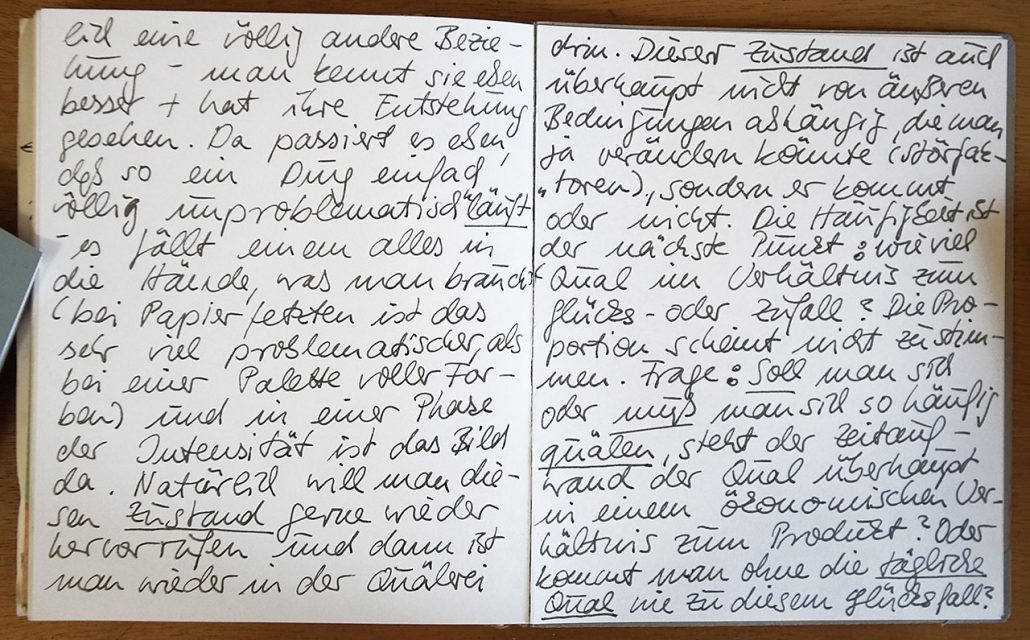 lich eine völlig andere Bezie-
hung – man kennt sie eben
besser + hat ihre Entstehung
gesehen. Da passiert es eben,
daß so ein Ding einfach
völlig unproblematisch "läuft"
– es fällt einem alles in
die Hände, was man braucht
(bei Papierfetzten ist das
sehr viel problematischer, als
bei einer Palette voller Far-
ben) und in einer Phase
der Intensität ist das Bild
da. Natürlich will man die-
sen Zustand gerne wieder
hervorrufen und dann ist
man wieder in der Quälerei
drin. Dieser Zustand ist auch
überhaupt nicht von äußeren
Bedingungen abhängig, die man
ja verändern könnte (Störfak-
toren), sondern er kommt
oder nicht. Die Häufigkeit ist
der nächste Punkt: wie viel
Qual im Verhältnis zum
Glücks- oder Zufall? Die Pro-
portion scheint nicht zu stim-
men. Frage: Soll man sich
oder muß man sich so häufig
quälen, steht der Zeitauf-
wand der Qual überhaupt
in einem ökonomischen Ver-
hältnis zum Produkt? Oder
kommt man ohne die tägliche
Qual nie zu diesem Glücksfall?